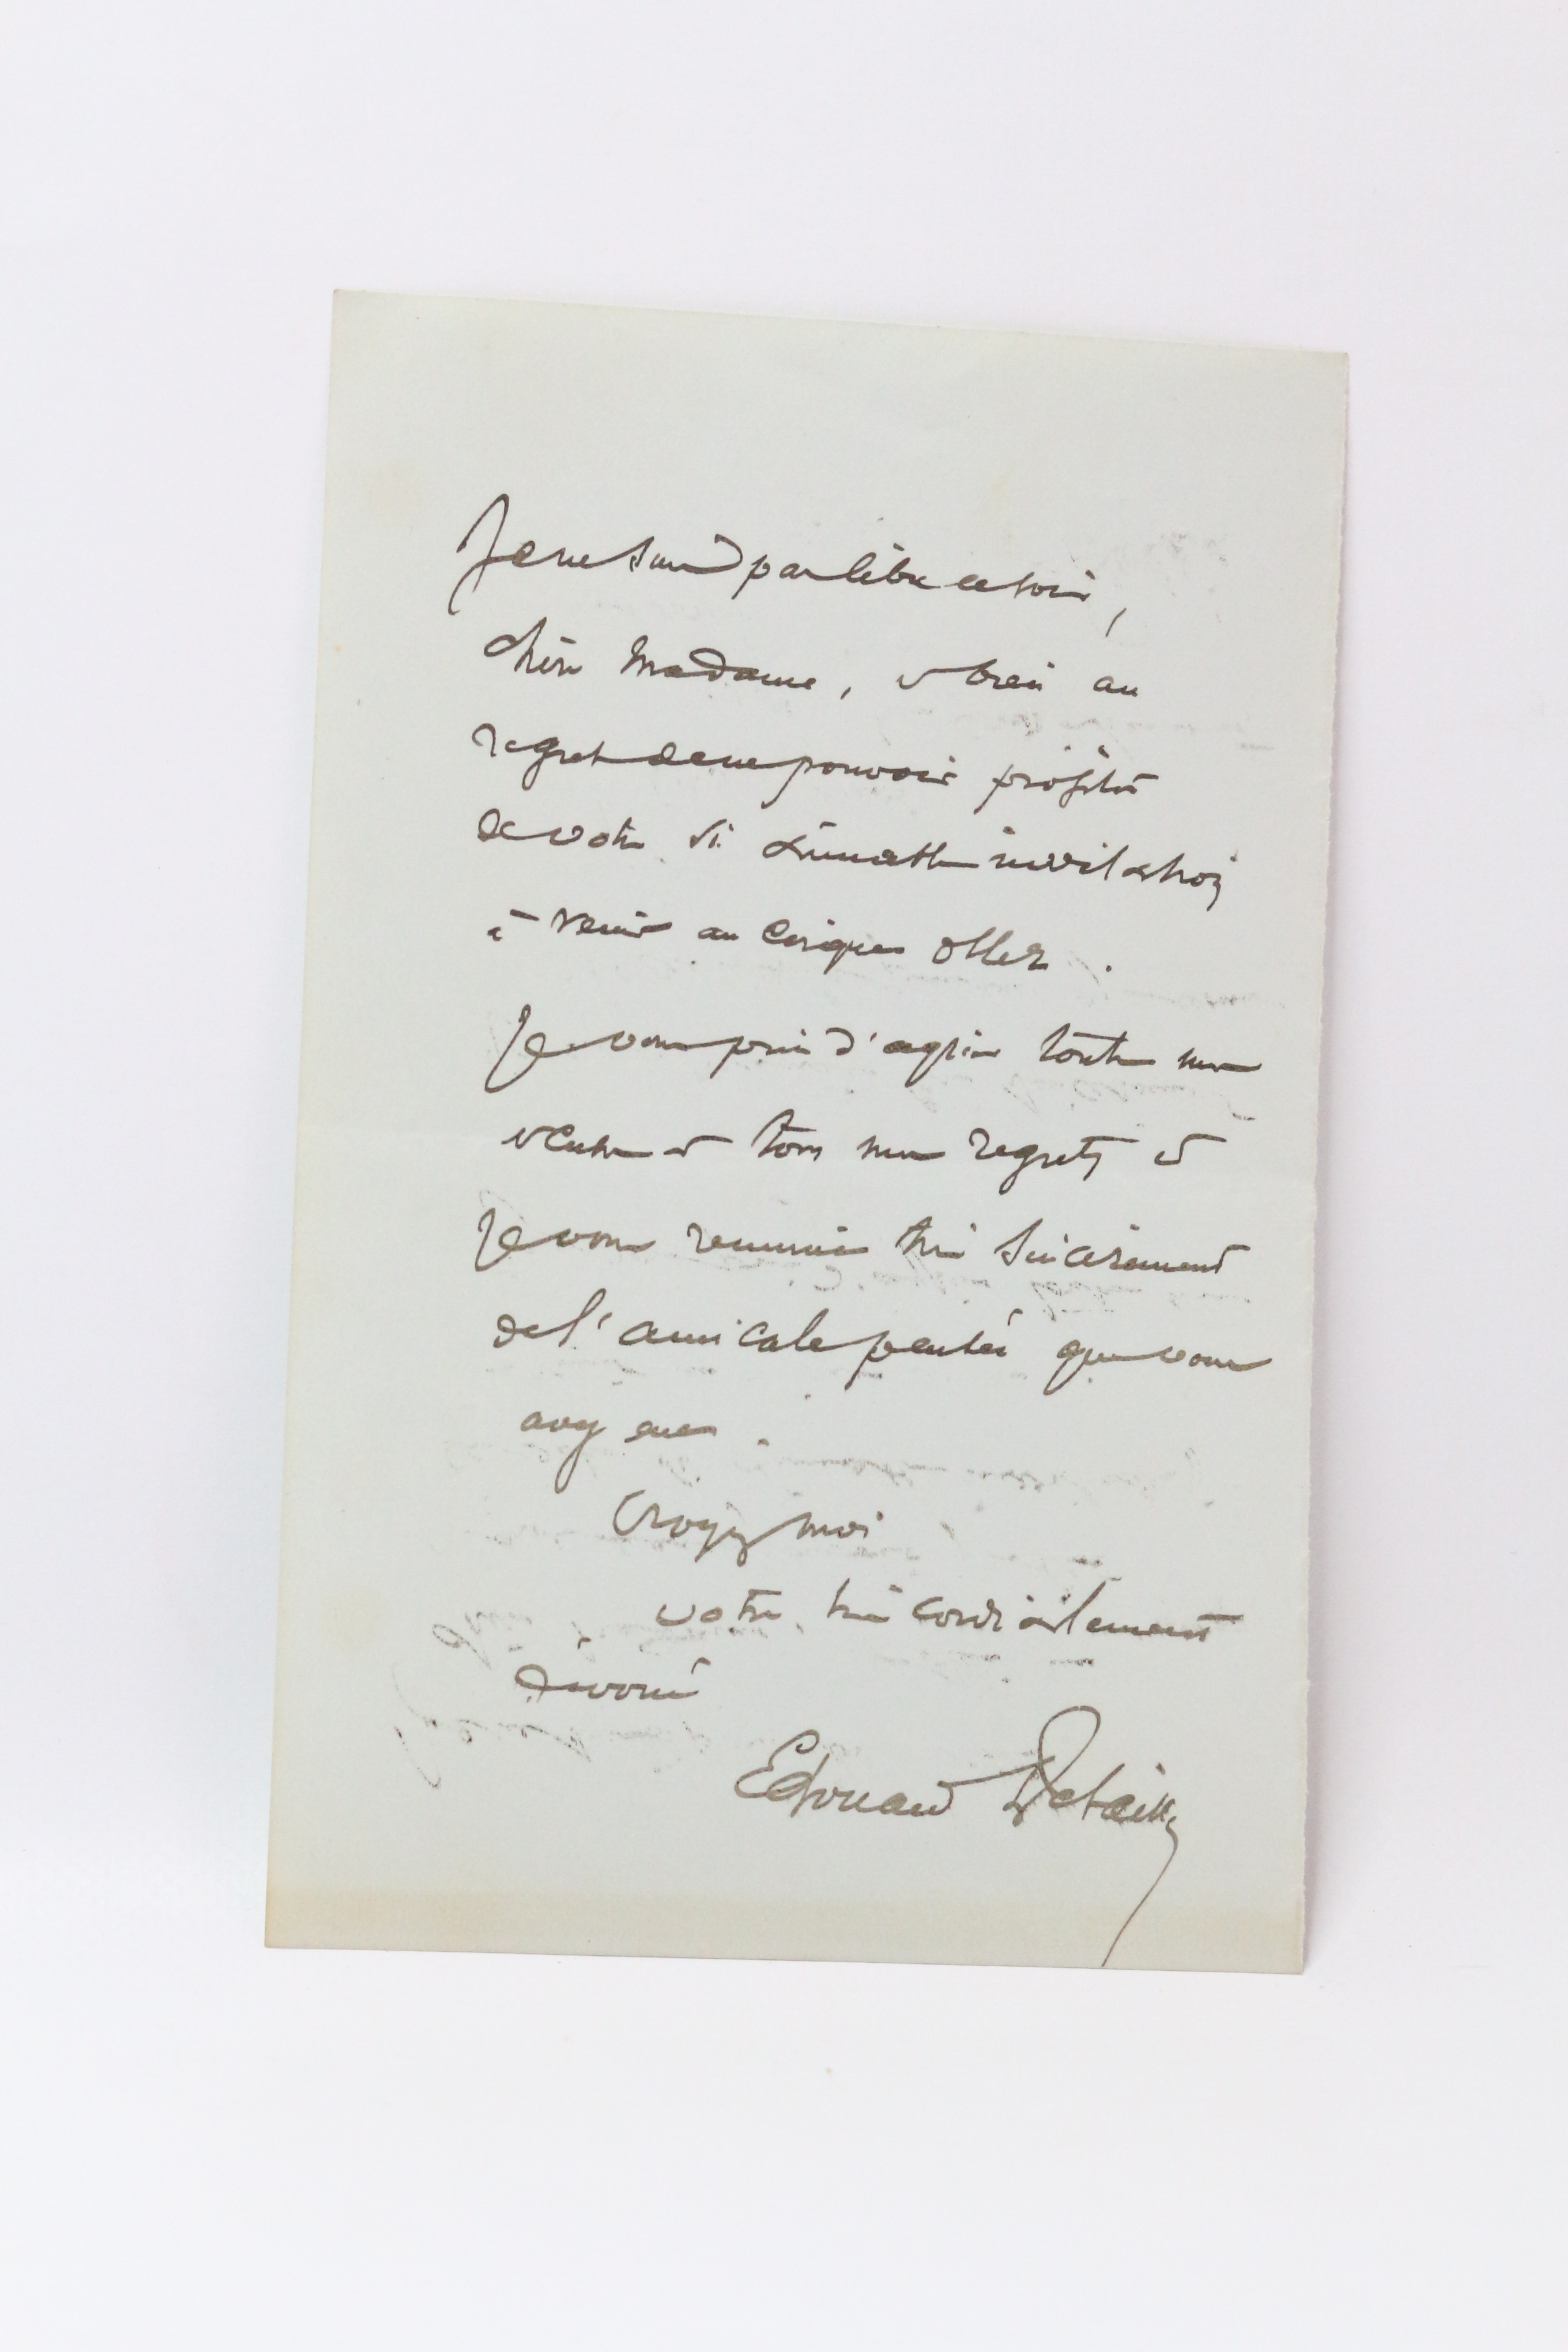 Je ne suis pas libre ce soir,
chère Madame, et bien au
regret de ne pouvoir profiter
de votre si aimable invitation
à venir au Cirque Oller.
Je vous prie d'agréer toutes mes
et tous mes regrets et
je vous remercie très sincèrement
de l'amicale pensée que vous
avez eue.
Croyez moi
votre très cordialement
dévoué
Edouard Detaille